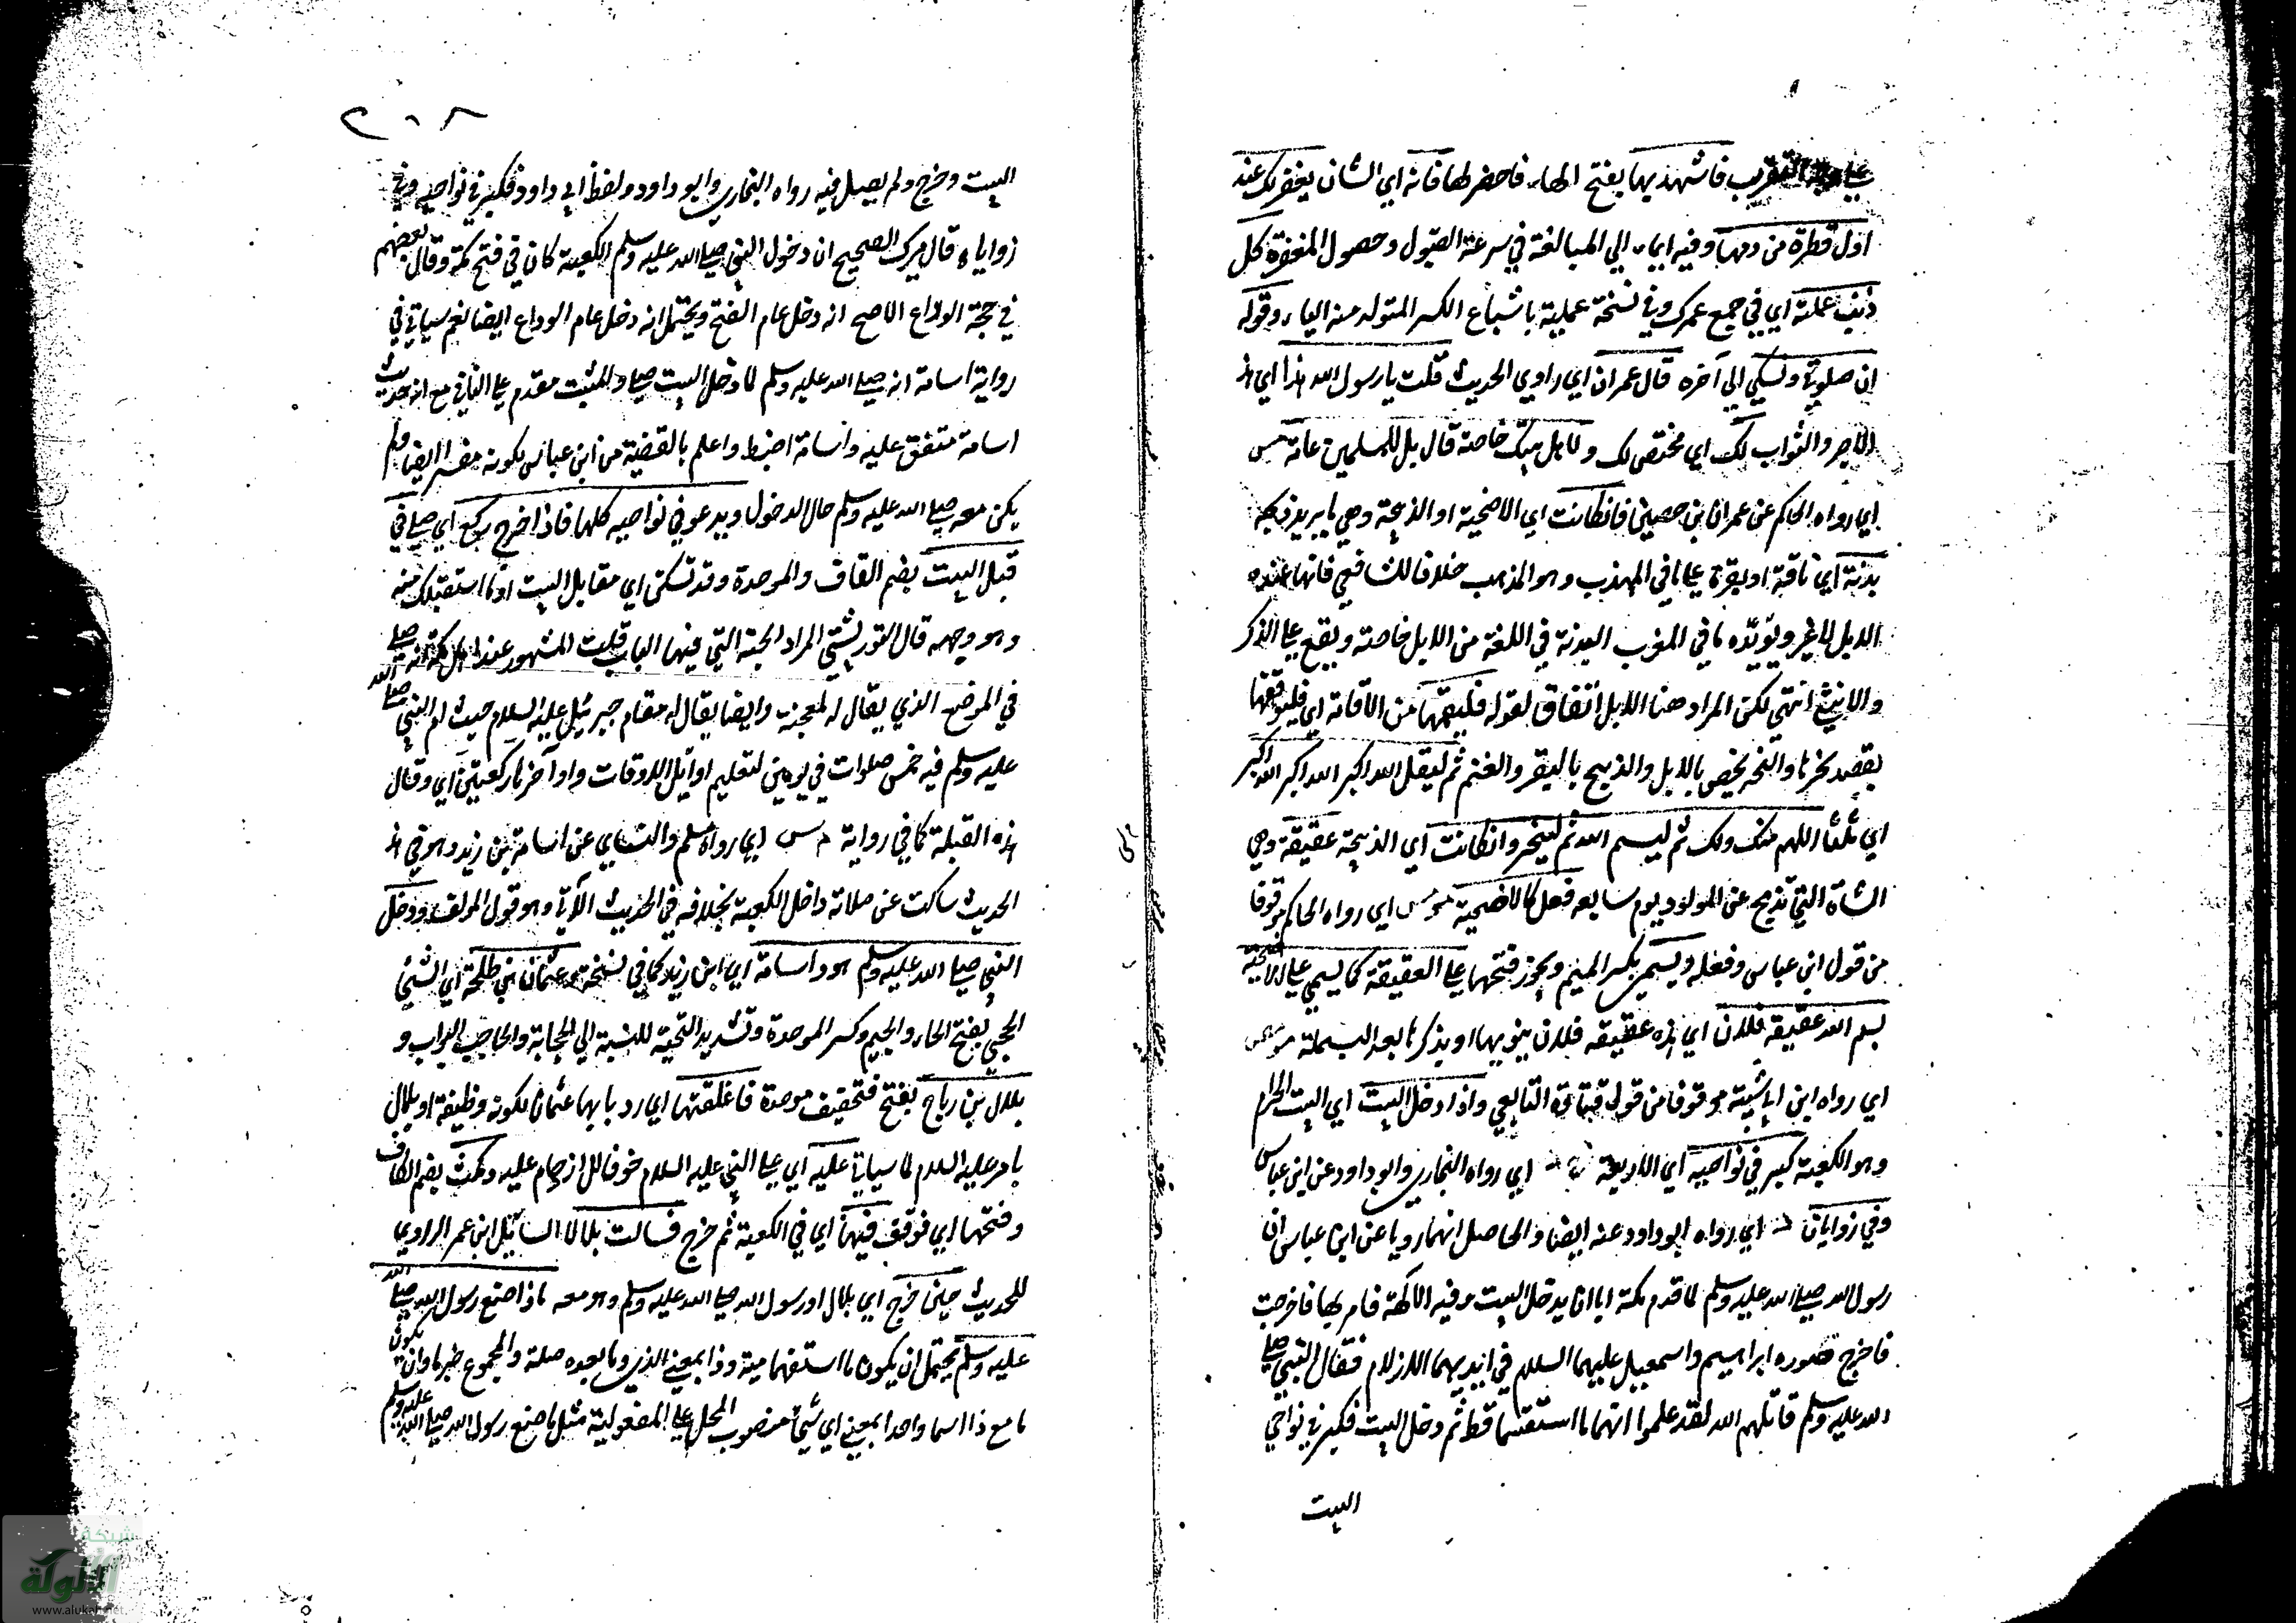 على وجه التقريب فاشهديها بفتح الهاء فاحضرلها فانه اي الشان يغفر لك عند
اول قطرة من دمها وفيه ايماء الي المبالغة في سرعة القبول وحصول المغفرة كل
ذنب عملته اي في جميع عمرك وفي نسخة عمليته باشباع الكسر المتولد منه الياء وقوله
ان صلوتي ونسكي الي آخره قال عمران اي راوي الحديث قلت يا رسول الله هذا اي هذا
الاجر والثواب لك اي مختص لك ولاهل بيتك خاصة قال بل للمسلمين عامة مس
اي رواه الحاكم عن عمران بن حصين فانكانت اي الاضحية او الذبيحة وهي ما يريد ذبحه
بدنة اي ناقة او بقرة على ما في المهذب وهو المذهب خلافا للشافعي فانها عنده
الابل لا غير ويؤيده ما في المغرب البدنة في اللغة من الابل خاصة ويقع على الذكر
والانثي انتهي لكن المراد هنا الابل اتفاق لقوله فليقمها من الاقامة اي فليوقفها
بقصد نحرها والنحر يختص بالابل والذبح بالبقر والغنم ثم ليقل الله اكبر الله اكبر الله اكبر
اي ثلثا اللهم منك ولك ثم ليسم الله ثم لينحر وانكانت اي الذبيحة عقيقة وهي
الشاة التي تذبح عن المولود يوم سابعه فعل كالاضحية مومس اي رواه الحاكم موقوفا
من قول ابن عباس وفعله ويسمي بكسر الميم ويجوز فتحها على العقيقة كما يسمي على الاضحية
بسم الله عقيقة فلان اي هذه عقيقة فلان ينويها او يذكرها بعد البسملة مومص
اي رواه ابن ابي شيبة موقوفا من قول قتادة التابعي واذا دخل البيت اي البيت الحرام
وهو الكعبة كبر في نواحيه اي الاربعة اي رواه البخاري وابو داود عن ابن عباس
وفي زواياه د اي رواه ابو داود عنه ايضا والحاصل انهما رويا عن ابن عباس ان
رسول الله صلى الله عليه وسلم لما قدم مكة ابا ان يدخل البيت وفيه الآلهة فامر بها فاخرجت
فاخرج صورة ابراهيم واسمعيل عليهما السلام في ايديهما الازلام فقال النبي صلى
الله عليه وسلم قاتلهم الله لقد علموا انهما ما استقسما قط ثم دخل البيت فكبر في نواحي
البيت
٢٠٨
البيت وخرج ولم يصل فيه رواه البخاري وابو داود ولفظ ابي داود فكبر في نواحيه وفي
زواياه قال ميرك الصحيح ان دخول النبي صلى الله عليه وسلم الكعبة كان في فتح مكة وقال بعضهم
في حجة الوداع الاصح انه دخل عام الفتح ويحتمل انه دخل عام الوداع ايضا نعم سياتي في
رواية اسامة انه صلى الله عليه وسلم لما دخل البيت صلى والمثبت مقدم على النافي مع ان حديث
اسامة متفق عليه واسامة اضبط واعلم بالقضية من ابن عباس لكونه مفسرا ايضا ولم
يكن معه صلى الله عليه وسلم حال الدخول ويدعو في نواحيه كلها فاذا خرج ركع اي صلى في
قبل البيت بضم القاف والموحدة وقد تسكن اي مقابل البيت او ما استقبلك منه
وهو وجهه قال التوربشتي المراد الجهة التي فيها الباب قلت المشهور عند اهل مكة انه صلى
في الموضع الذي يقال له المعجنة وايضا يقال له مقام جبرئيل عليه السلام حيث ام النبي صلى الله
عليه وسلم فيه خمس صلوات في يومين لتعليم اوايل الاوقات واواخرها ركعتين اي وقال
هذه القبلة كما في رواية م س اي رواه مسلم والنسايي عن اسامة بن زيد وهو في هذا
الحديث ساكت عن صلاته داخل الكعبة بخلافه في الحديث الآتي وهو قول المولف ودخل
النبي صلى الله عليه وسلم هو واسامة اي ابن زيد كما في نسخة وعثمان بن طلحة اي الشيبي
الحجبي بفتح الحاء والجيم وكسر الموحدة وتشديد التحتية للنسبة الي الحجابة والحاجب البواب و
بلال بن رباح بفتح فتخفيف موحدة فاغلقها اي رد بابها عثمان لكونه وظيفة او بلال
بامر عليه السلام لما سياتي عليه اي على النبي عليه السلام خوفا للازدحام عليه ومكث بضم الكاف
وفتحها اي توقف فيها اي في الكعبة ثم خرج فسالت بلالا السايل ابن عمر الراوي
للحديث حين خرج اي بلال او رسول الله صلى الله عليه وسلم وهو معه ماذا صنع رسول الله صلى الله
عليه وسلم يحتمل ان يكون ما استفهامية وذا بمعني الذي وما بعده صلة والمجموع خبرها وان يكون
ما مع ذا اسما واحدا بمعني اي شيئ منصوب المحل على المفعولية مثل ما صنع رسول الله صلى الله عليه وسلم
شبكة
الألوكة
www.alukah.net